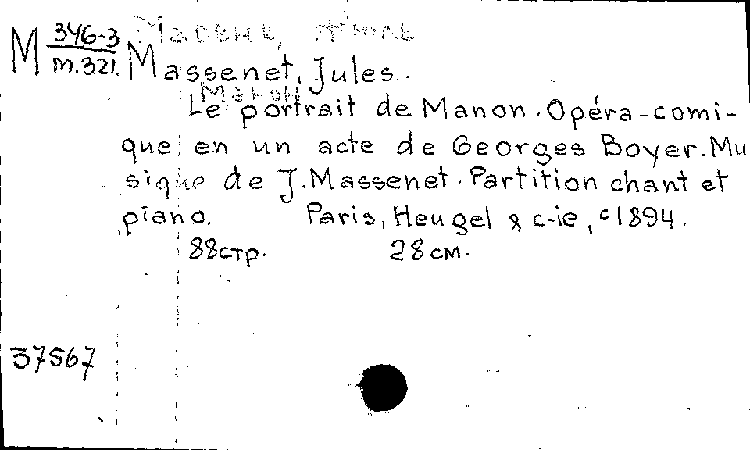 M 346-3
m.321.
Massenet, Jules.
Le portrait de Manon. Opéra-comi-
que en un acte de Georges Boyer. Mu
sique de J. Massenet. Partition chant et
piano. Paris, Heugel & c-ie, c1894.
88стр. 28 см.
37567